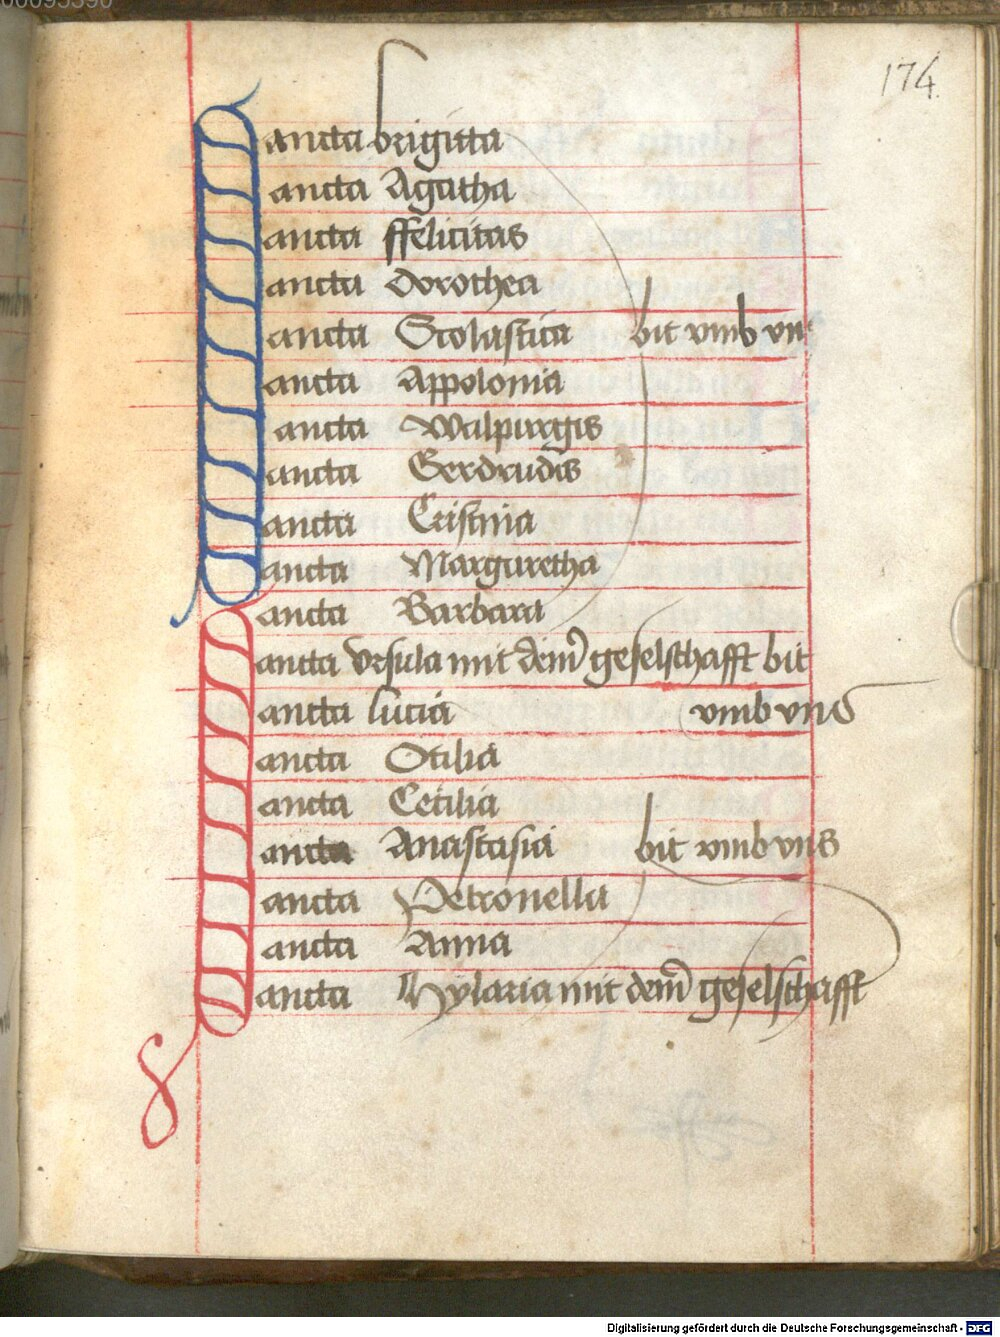 174
Sancta brigitta
Sancta Agatha
Sancta ffelicitas
Sancta dorothea
Sancta Scolastica bit vmb vns
Sancta Appolonia
Sancta Walpurgis
Sancta Gerdrudis
Sancta Cristina
Sancta Margaretha
Sancta Barbara
Sancta vrsula mit dem̄ geselschafft bit
Sancta lucia vmb vns
Sancta Otilia
Sancta Cecilia
Sancta Anastasia bit vmb vns
Sancta Petronella
Sancta Anna
Sancta Hylaria mit dem̄ geselschafft
Digitalisierung gefördert durch die Deutsche Forschungsgemeinschaft - DFG